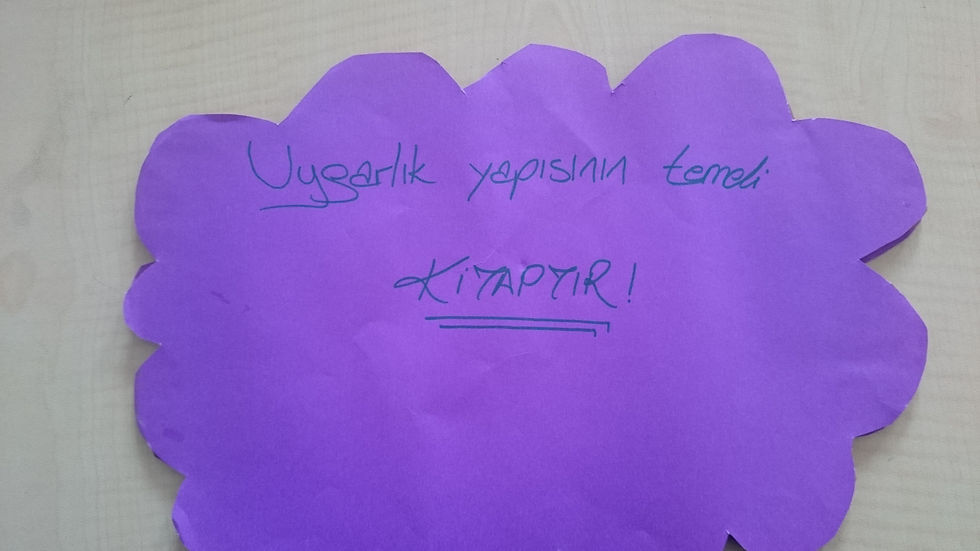 Uygarlık yapısının temeli
KİTAPTIR!